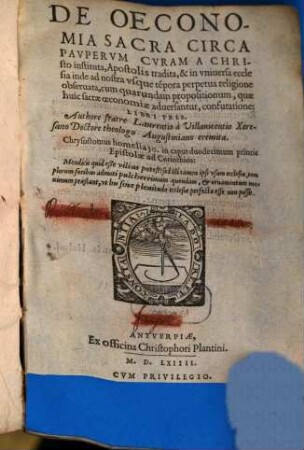 DE OECONO-
MIA SACRA CIRCA
PAVPERVM CVRAM A CHRI-
sto instituta, Apostolis tradita, & in vniuersa eccle
sia inde ad nostra vsque tēpora perpetua religione
obseruata, cum quarundam propositionum, quæ
huic sacræ œconomiæ aduersantur, confutatione:
LIBRI TRES.
Authore fratre Laurentio à Villauicentio Xere-
sano Doctore theologo Augustiniano eremita.
Chrysostomus homelia 30. in caput duodecimum prioris
Epistolæ ad Corinthios:
Mendico quid esse vilius potest: sed illi tamen ipsi vsum ecclesiæ, tem
plorum foribus admoti pulcherrimum quendam, & ornamentum ma-
ximum præstant, vt hu sine plenitudo ecclesiæ perfecta esse non possit.
ANTVERPIÆ,
Ex officina Christophori Plantini.
M. D. LXIIII.
CVM PRIVILEGIO.